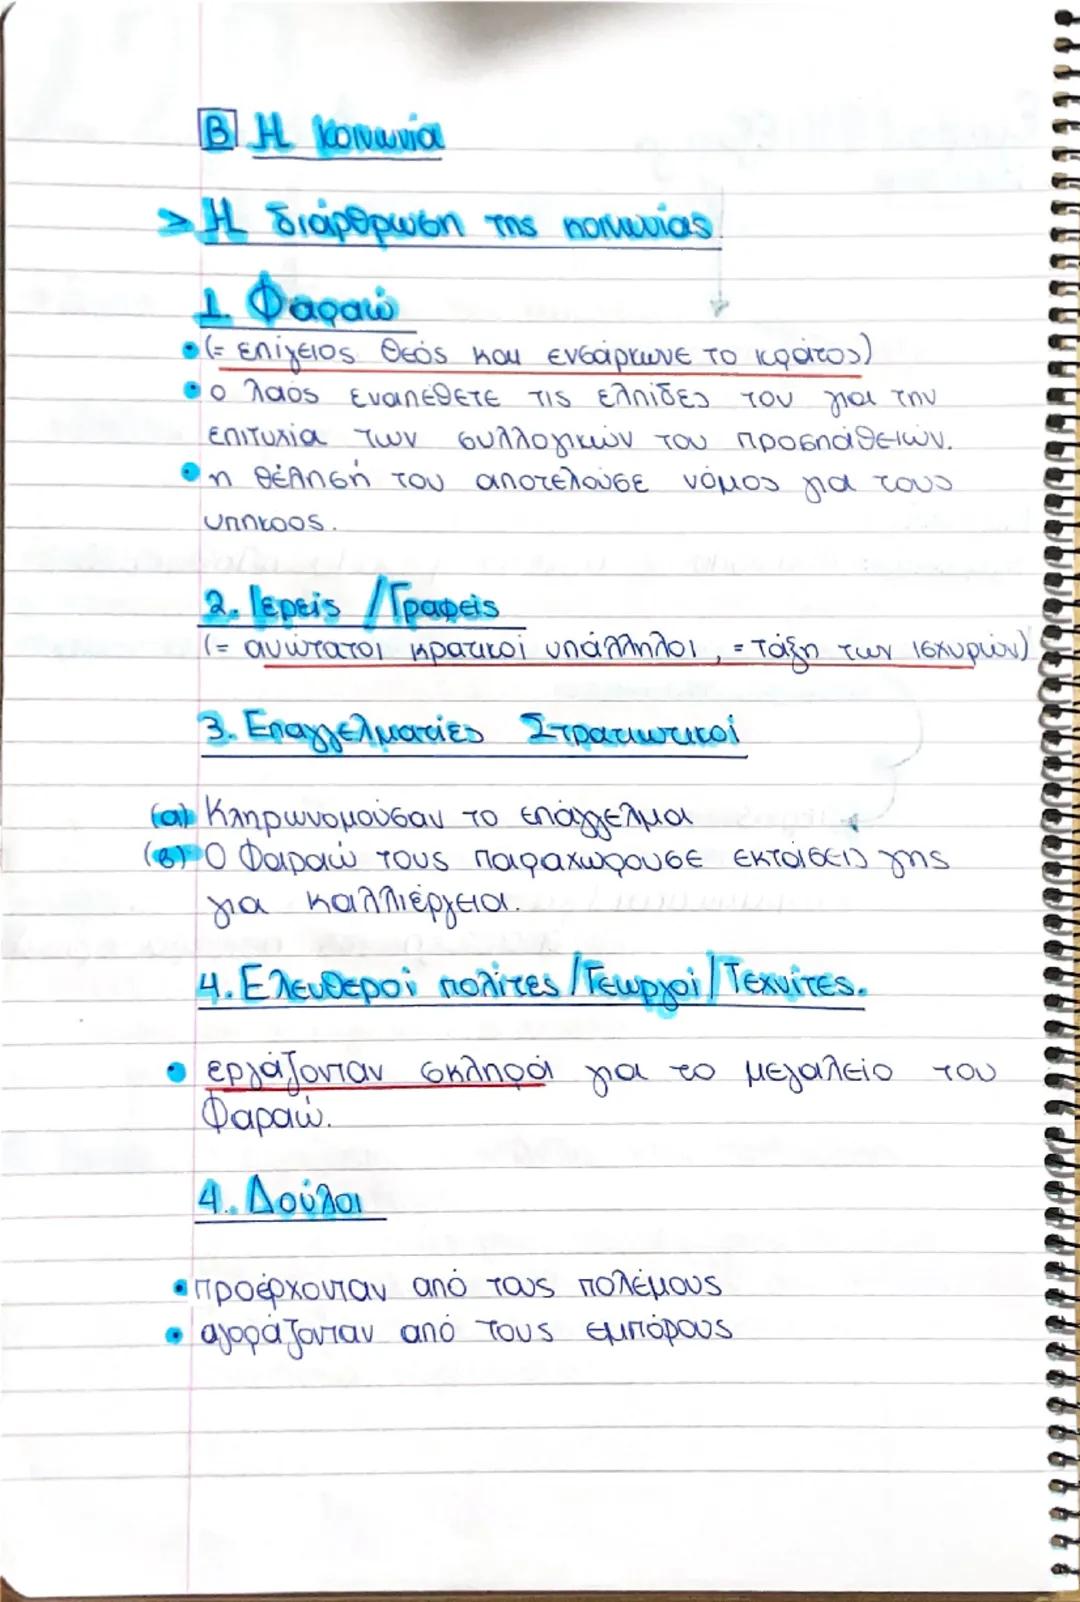 Β Η κοινωνία
> Η διάρθρωση της κοινωνίας
1. Φαραώ
• (= επίγειος θεός και ενσάρκωνε το κράτος)
• ο λαός εναπέθετε τις ελπίδες του για την
επιτυχία των συλλογικών του προσπάθειών.
• η θέλησή του αποτελούσε νόμος για τους
υπηκοος.
2. Ιερείς /Γραφείς
(= ανώτατοι κρατικοί υπάλληλοι, = τάξη των ισχυρών)
3. Επαγγελματίες Στρατιωτικοί
(α) Κληρωνομούσαν το επάγγελμα
(β) Ο Φαραώ τους παραχωρουσε εκτάσεις γης
για καλλιέργεια.
4. Ελευθεροι πολίτες /Γεωργοί / Τεχνίτες.
• εργάζονταν σκληρά για το μεγαλείο του
Φαραώ.
4. Δούλοι
• προέρχονταν από τους πολέμους
• αγοράζονταν από τους εμπόρους